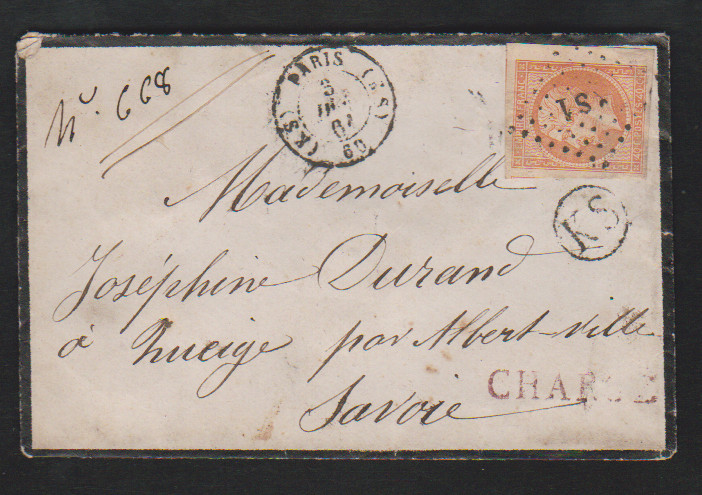 Nº 668
PARIS (K.S)
3
60
(K.S)
KS
Mademoiselle
Joséphine Durand
à par Albert-ville
Savoie
CHARGÉ